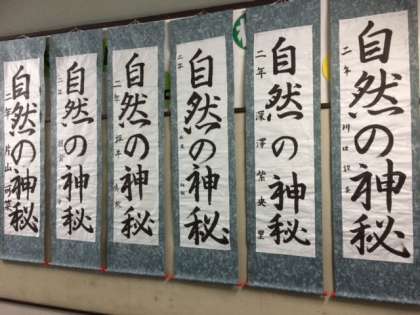 自然の神秘
二年 片山
自然の神秘
二年
自然の神秘
二年
自然の神秘
二年
自然の神秘
二年 深澤紫央里
自然の神秘
二年 川口